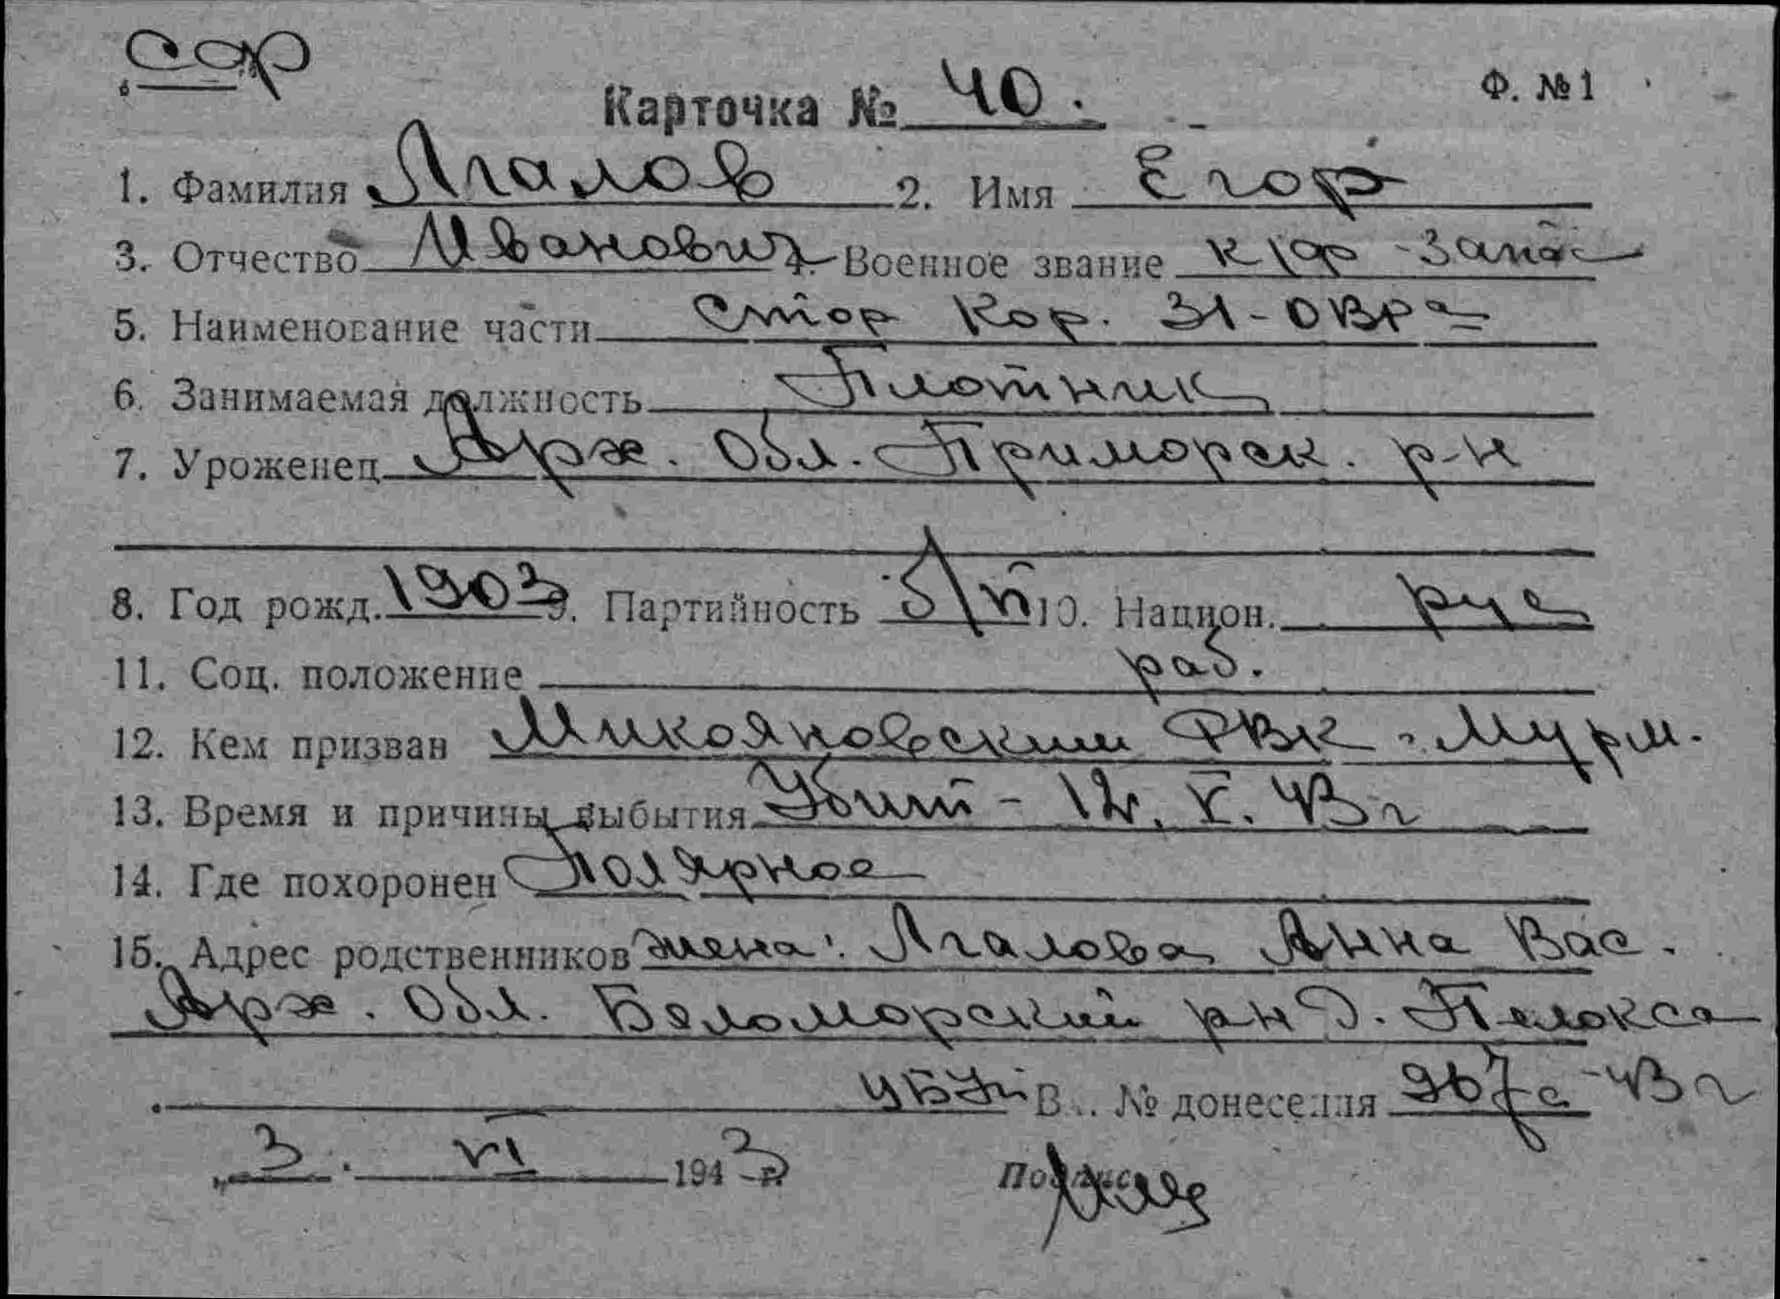 Карточка № 40. Ф. № 1
1. Фамилия Агалов 2. Имя Егор
3. Отчество Иванович 4. Военное звание к/ф запас
5. Наименование части Стор. Кор. ЗЛ-ОВРа
6. Занимаемая должность Плотник
7. Уроженец Арх. Обл. Приморск. р-н
8. Год рожд. 1903 9. Партийность б/п 10. Национ. рус
11. Соц. положение раб.
12. Кем призван Микояновским РВК - Мурм.
13. Время и причины выбытия Убит - V. 43 г
14. Где похоронен Полярное
15. Адрес родственников жена: Агалова Анна Вас.
Арх. Обл. Беломорский р-н Д. Пелокса
№ донесения 43 г
"3." VI 1943 г. Подпись